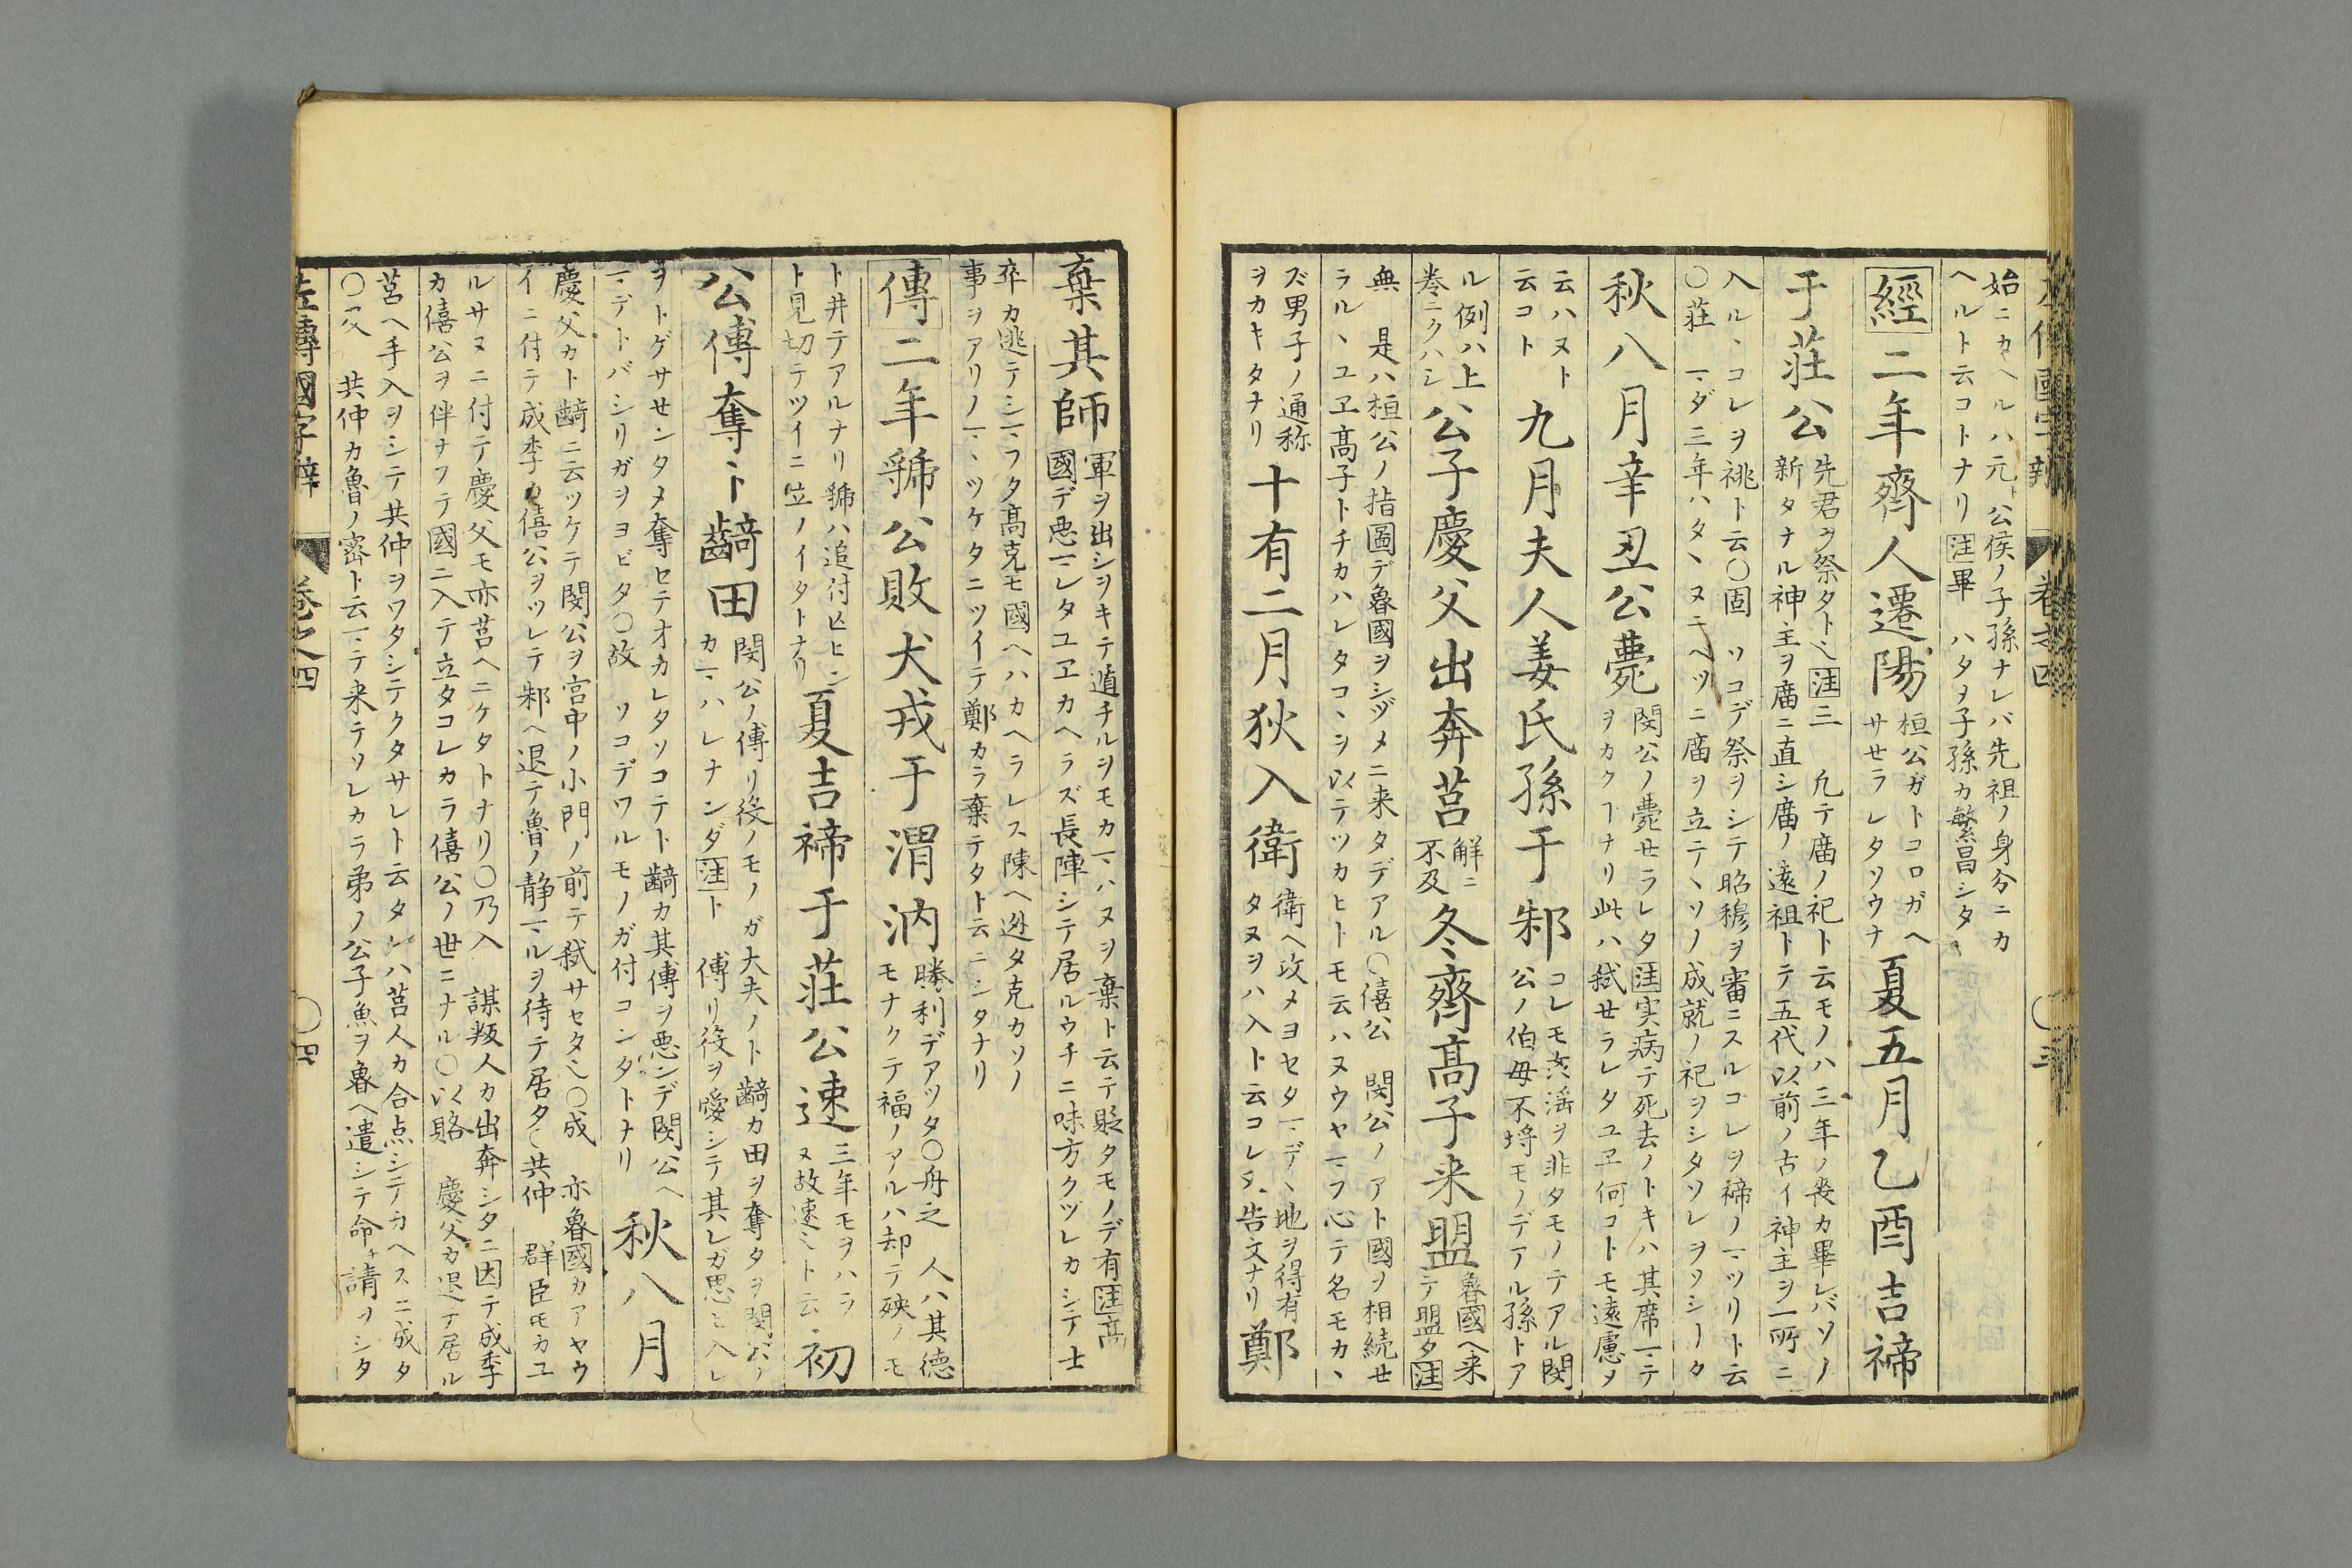 始ニカヘルハ元ト公侯ノ子孫ナレバ先祖ノ身分ニカ
ヘルト云コトナリ注畢 ハタヲ子孫カ繁昌シタ
經二年齊人遷陽
桓公ガトコロガヘ
サセラレタソウナ
夏五月乙酉吉禘
于莊公
先君ヲ祭タト也注三 凢テ廟ノ祀ト云モノハ三年ノ喪カ畢レバソノ
新タナル神主ヲ廟ニ直シ廟ノ遠祖トテ五代以前ノ古イ神主ヲ一所ニ
入ル、コレヲ祧ト云〇固 ソコデ祭ヲシテ昭穆ヲ審ニスルコレヲ禘ノマツリト云
〇莊 マダ三年ハタヽヌニヘツニ廟ヲ立テヽソノ成就ノ祀ヲシタソレヲソシータ
秋八月辛丑公薨
閔公ノ薨せラレタ注実病テ死去ノトキハ其席マテ
ヲカクヿナリ此ハ弑せラレタユヱ何コトモ遠慮ヌ
云ハヌト
云コト
九月夫人姜氏孫于邾
コレモ姦淫ヲ非タモノテアル閔
公ノ伯母不埒モノデアル孫トア
ル例ハ上
巻ニクハシ
公子慶父出奔莒
解ニ
不及
冬齊高子来盟
魯國ヘ来
テ盟タ注
無 是ハ桓公ノ指圖デ魯國ヲシヅメニ来タデアル〇僖公 閔公ノアト國ヲ相続せ
ラル、ユヱ高子トチカハレタコヽヲ以テツカヒトモ云ハヌウヤマフ心テ名モカヽ
ズ男子ノ通称
ヲカキタナリ
十有二月狄入衛
衛ヘ攻メヨセタマデヽ地ヲ得有
タヌヲハ入ト云コレタ告文ナリ
鄭
棄其師
軍ヲ出シヲキテ逌チルヲモカマハヌヲ棄ト云テ貶タモノデ有注高
國デ悪マレタユヱカヘラズ長陣シテ居ルウチニ味方クヅレカシテ士
卒カ逃テシマフタ高克モ國ヘハカヘラレス陳ヘ迯タ克カソノ
事ヲアリノマヽツケタニツイテ鄭カラ棄テタト云ニシタナリ
傳二年虢公敗犬戎于渭汭
勝利デアツタ〇舟之 人ハ其德
モナクテ福ノアルハ却テ殃ノモ
ト井テアルナリ虢ハ追付亡ヒン
ト見切テツイニ立ノイタトナリ
夏吉禘于莊公速
三年モヲハラ
ヌ故速シト云
初
公傅奪卜齮田
閔公ノ傅リ役ノモノガ大夫ノト齮カ田ヲ奪タヲ閔公ノ
カマハレナンダ注ト 傅リ役ヲ愛シテ其レガ思ヒ入レ
ヲトゲサせンタメ奪セテオカレタソコテト齮カ其傅ヲ悪ンデ閔公ヘ
マデトバシリガヲヨビタ〇故 ソコデワルモノガ付コンタトナリ
秋八月
慶父カト齮ニ云ツケテ閔公ヲ宫中ノ小門ノ前テ弑サセタ也〇成 亦魯國カアヤウ
イニ付テ成季カ僖公ヲツレテ邾ヘ退テ魯ノ静マルヲ待テ居タ〇共仲 群臣モカユ
ルサヌニ付テ慶父モ亦莒ヘニケタトナリ〇乃入 謀叛人カ出奔シタニ因テ成季
カ僖公ヲ伴ナフテ國ニ入テ立タコレカラ僖公ノ世ニナル〇以賂 慶父カ退テ居ル
莒ヘ手入ヲシテ共仲ヲワタシテクタサレト云タレハ莒人カ合点シテカヘスニ成タ
〇及 共仲カ魯ノ密ト云マテ来テソレカラ弟ノ公子魚ヲ魯ヘ遣シテ命ヲ請ヲシタ
左傳國字辯 卷之四